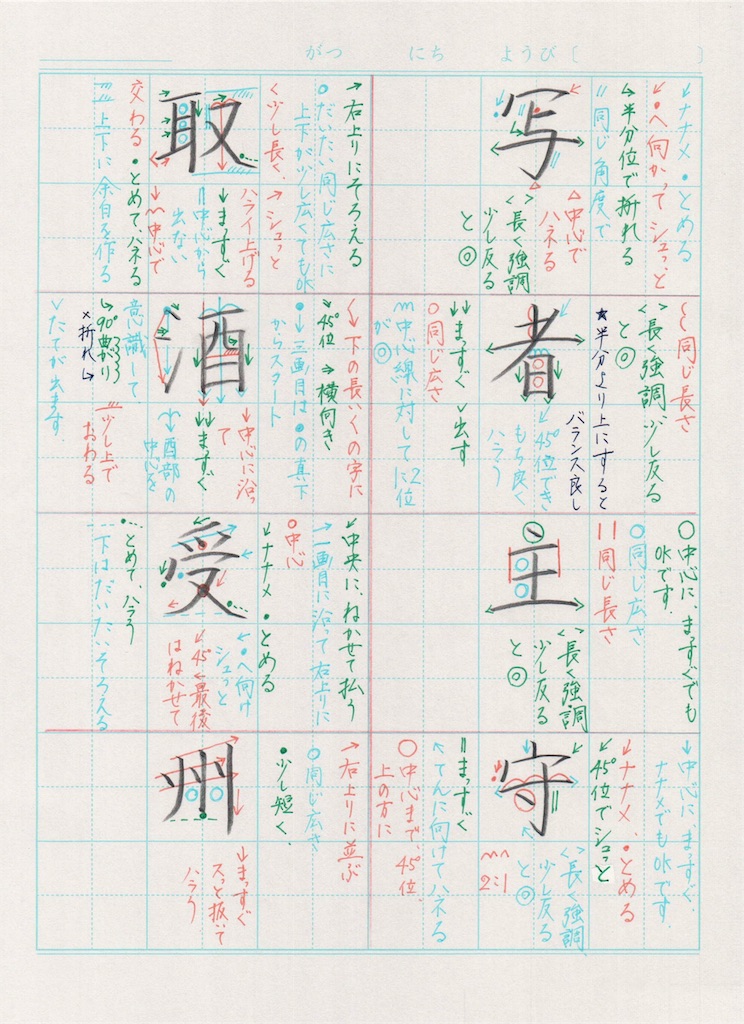 がつ にち ようび〔 〕
↙ナナメ ●とめる
↙●へ向かってシュッと
↳半分位で折れる
〃同じ角度で
写
△中心で
ハネる
<>長く強調
少し反る
と◎
⌇同じ長さ
<>長く強調 少し反る
と◎
★半分より上にすると
バランス良し
者
↙45°位でき
もち良く
ハラう
↓↓まっすぐ ✓出す
○同じ広さ
中心線に対して に2位
が◎
○中心に、まっすぐでも
OKです。
○同じ広さ
||同じ長さ
主
<>長く強調
少し反る
と◎
↓中心に、まっすぐ。
ナナメでもOKです。
↙ナナメ、●とめる
↙45°位でシュッと
守
<>長く強調
少し反る
と◎
2:1
||まっすぐ
↖てんに向けてハネる
○中心まで、45°位、
上の方に
→右上りにそろえる
○だいたい同じ広さに
上下が少し広くてもOK
<少し長く、→シュッと
取
ハライ上げる
↓まっすぐ
||中心から
出ない
→中心で
交わる ●とめて、ハネる
上下に余白を作る
<↓下の長いくの字に
45°位 →横向き
●↓三画目は●の真下
からスタート
酒
↓中心に沿っ
て
↓↓まっすぐ
酉部の
中心を
意識して 少し上で
おわる
↳90°曲がり
×折れ↳
✓たてが出ます
↙中央に、ねかせて払う
→一画目に沿って右上りに
○中心
↙ナナメ ●とめる
受
←●へ向け
シュッと
↙45°←最後
はねかせて
●…とめて、ハラう
---下はだいたいそろえる
→右上りに並ぶ
○同じ広さ
●少し短く、
州
↓まっすぐ
スッと抜いて
ハラう